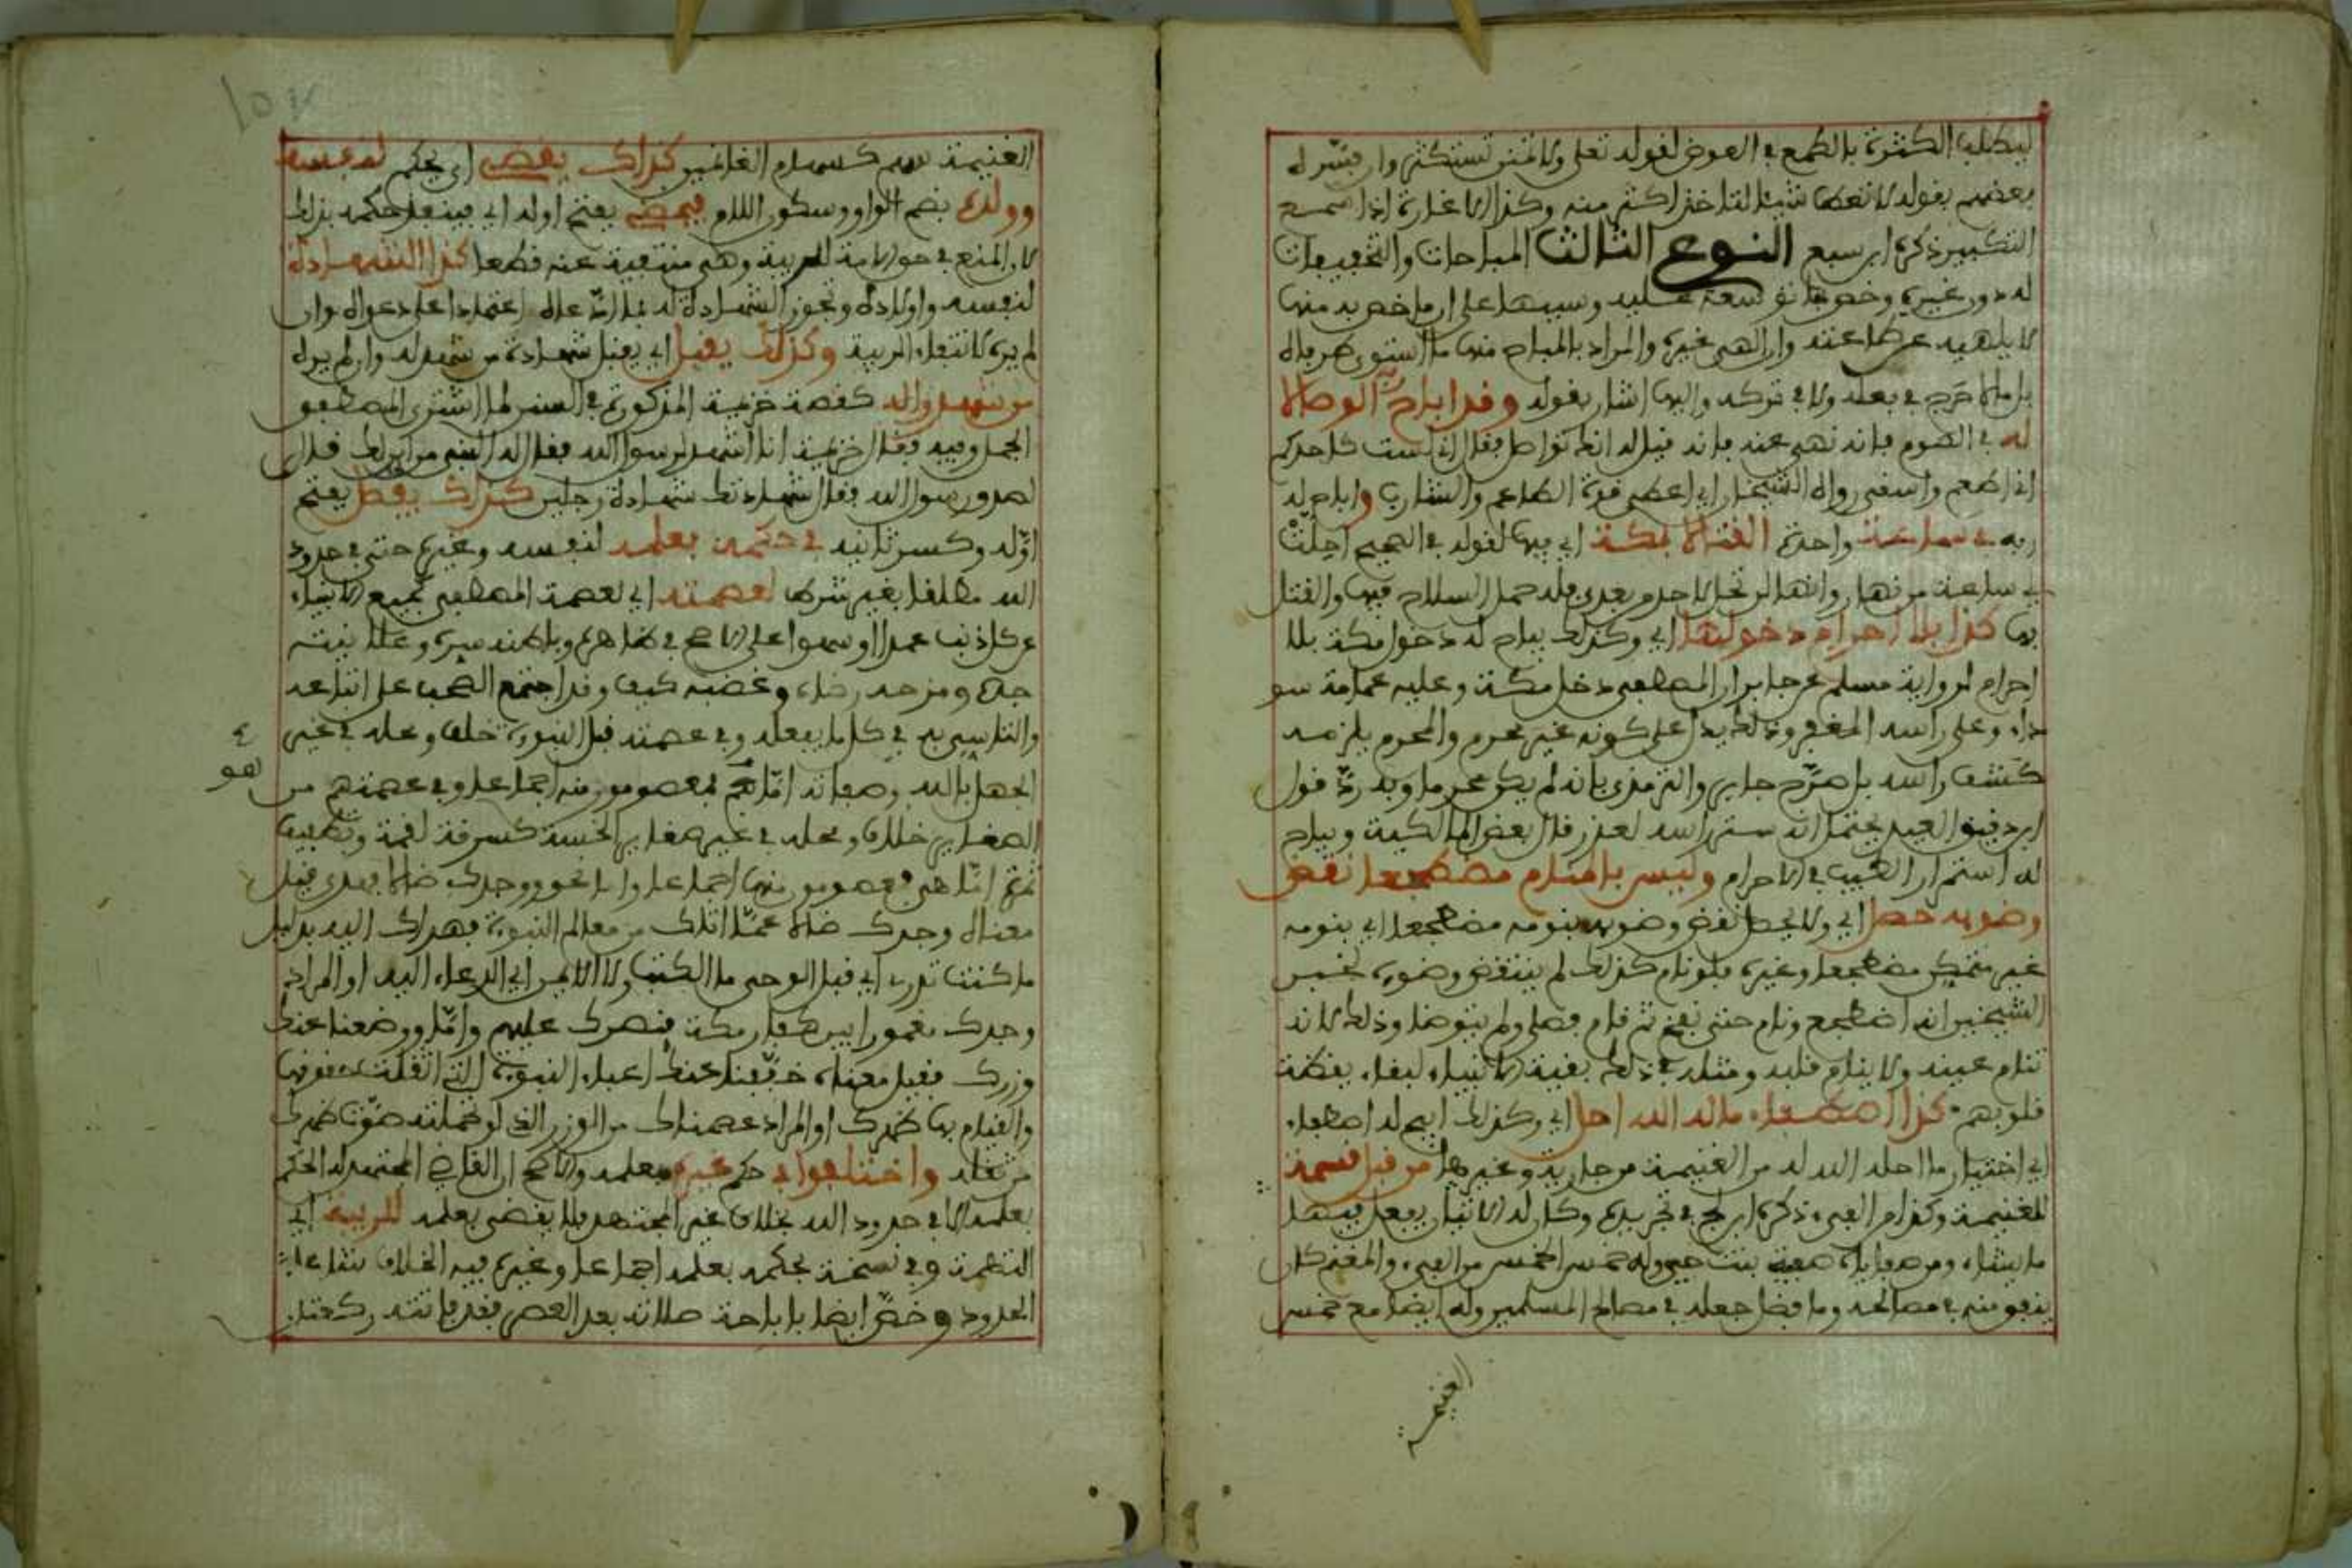 ليطلب الكثرة بالطمع في العوض لقوله تعلى ولا تمنن تستكثر وان فسره
بعضهم بقوله لا تعط شيئا لتاخذ اكثر منه وكذا الاغارة اذا سمع
التكبير ذكره ابن سبع النوع الثالث المباحات والتخفيفات
له دون غيره وخص بها توسعة عليه وتنبيها على ان ما خص به منها
لا يلهيه عن طاعته وان الهى غيره والمراد بالمباح منها ما استوى طرفاه
بل ما لا حرج في فعله ولا في تركه واليها اشار بقوله وقد اباح ربه الوصالا
له في الصوم فانه نهى عنه فانه قيل له انك تواصل فقال اني لست كاحدكم
اني اطعم واسقى رواه الشيخان اي اعطى قوة الطاعم والشارب واباح له
ربه في ساعة واحدة القتال بمكة اي فيها لقوله في الصحيح احلت
لي ساعة من نهار وانها لن تحل لاحد بعدي فله حمل السلاح فيها والقتل
بها كذا بلا احرام دخولها اي وكذلك يباح له دخول مكة بلا
احرام لرواية مسلم عن جابر ان المصطفى دخل مكة وعليه عمامة سو
داء وعلى راسه المغفر وذلك يدل على كونه غير محرم والمحرم يلزمه
كشف راسه بل صرح جابر والترمذي بانه لم يكن محرما وبه رد قول
ابن دقيق العيد يحتمل انه ستر راسه لعذر قال بعض المالكية ويباح
له استمرار الطيب في الاحرام وليس بالمنام مضطجعا نقض
وضوئه حصل اي ولا يحصل نقض وضوئه بنومه مضطجعا اي بنومه
غير متمكن مضطجعا وغيره فلو نام كذلك لم ينتقض وضوءه لخبر
الشيخين انه اضطجع ونام حتى نفخ ثم قام فصلى ولم يتوضا وذلك لانه
تنام عينه ولا ينام قلبه ومثله في ذلك بقية الانبياء لبقاء يقظة
قلوبهم كذا اصطفاء ما له الله احل اي وكذلك ابيح له اصطفاء
اي اختيار ما احله الله له من الغنيمة من جارية وغيرها من قبل قسمة
للغنيمة وكذا من الفيء ذكره ابن كج في تجريده وكان له الانبار يفعل فيها
ما يشاء ومن صفاياه صفية بنت حيي وله خمس الخمس من الفيء والمغنم كان
ينفق منه في مصالحه وما فضل جعله في مصالح المسلمين وله ايضا مع خمس
الغنيمة
الغنيمة سهم كسهام الغانمين كذاك يقضي اي يحكم لنفسه
وولده بضم الواو وسكون اللام فيمضي بفتح اوله اي فينفذ حكمه بذلك
لان المنع في حق الامة للريبة وهي منتفية عنه قطعا كذا الشهادة
لنفسه واولاده وتجوز الشهادة له بما ادعاه اعتمادا على دعواه وان
لم يره لانتفاء الريبة وكذلك يقبل اي يقبل شهادة من شهد له وان لم يره
من شهدوا له كقصة خزيمة المذكورة في السنن لما اشترى المصطفى
الجمل وفيه فقال خزيمة انا اشهد لرسول الله فقال له النبي من اين لك قال
لصدق رسول الله فقال شهادتك شهادة رجلين كذاك يقضي بفتح
اوله وكسر ثانيه في حكمه بعلمه لنفسه وغيره حتى في حدود
الله مطلقا بغير شرط لعصمته اي لعصمة المصطفى كجميع الانبياء
عن كل ذنب عمدا او سهوا على الاصح في ظاهره وباطنه سره وعلانيته
جده ومزحه رضاه وغضبه كيف وقد اجتمع الصحب على اتباعه
والتاسي به في كل ما يفعله وفي عصمته قبل النبوة خلف ومحله في غير
الجهل بالله وصفاته اما هم فمعصومون منه اجماعا وفي عصمتهم من
هو
الصغاير خلاف ومحله في غير صغاير الخسة كسرقة لقمة وتطفيف
ثمرة اما هي فمعصومون منها اجماعا واما نحو ووجدك ضالا فهدى فقيل
معناه وجدك ضالا عما اتاك من معالم النبوة فهداك اليه بدليل
ما كنت تدري اي قبل الوحي ما الكتب ولا الايمن اي الدعاء اليه او المراد
وجدك مغمورا بين كفار مكة فنصرك عليهم واما ووضعنا عنك
وزرك فقيل معناه خففنا عنك اعباء النبوة التي اثقلت حقوقها
والقيام بها ظهرك او المراد عصمناك من الوزر الذي لو حملته صوت ظهرك
من ثقله واختلفوا في حكم غيره بعلمه والاصح ان القاضي المجتهد له الحكم
بعلمه الا في حدود الله بخلاف غير المجتهد فلا يقضي بعلمه للريبة اي
التهمة وفي نسخة يحكم بعلمه اجماعا وغيره فيه الخلاف شاع لا في
الحدود وخص ايضا باباحة صلاته بعد العصر فقد فاتته ركعتا